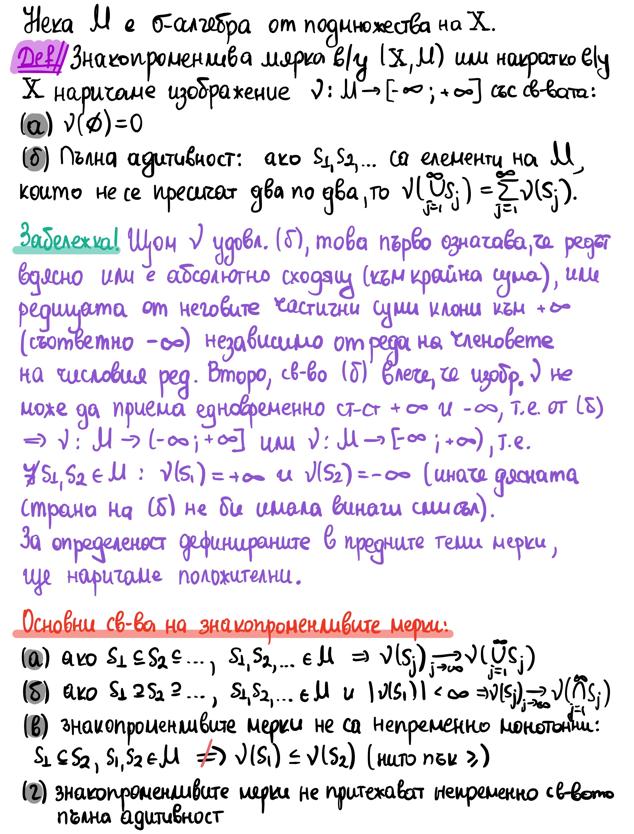 Нека M е σ-алгебра от подмножества на X.
Def/ Знакопроменлива мярка в/у (X, M) или накратко в/у
X наричаме изображение ν: M → [-∞; +∞] със св-вата:
(а) ν(∅)=0
(б) Пълна адитивност: ако S₁,S₂,... са елементи на M,
които не се пресичат два по два, то ν(⋃_{j=1}^{∞} S_j) = ∑_{j=1}^{∞} ν(S_j).
Забележка! Щом ν удовл. (б), това първо означава, че редът
вдясно или е абсолютно сходящ (към крайна сума), или
редицата от неговите частични суми клони към +∞
(съответно -∞) независимо от реда на членовете
на числовия ред. Второ, св-во (б) влече, че изобр. ν не
може да приема едновременно ст-ст +∞ и -∞, т.е. от (б)
⇒ ν: M → (-∞; +∞] или ν: M → [-∞; +∞), т.е.
∄ S₁,S₂ ∈ M : ν(S₁)=+∞ и ν(S₂)=-∞ (иначе дясната
страна на (б) не би имала винаги смисъл).
За определеност дефинираните в предните теми мерки,
ще наричаме положителни.
Основни св-ва на знакопроменливите мерки:
(а) ако S₁ ⊆ S₂ ⊆ ..., S₁,S₂,... ∈ M ⇒ ν(S_j) →_{j→∞} ν(⋃_{j=1}^{∞} S_j)
(б) ако S₁ ⊇ S₂ ⊇ ..., S₁,S₂,... ∈ M и |ν(S₁)| < ∞ ⇒ ν(S_j) →_{j→∞} ν(⋂_{j=1}^{∞} S_j)
(в) знакопроменливите мерки не са непременно монотонни:
S₁ ⊆ S₂, S₁,S₂ ∈ M ⇏ ν(S₁) ≤ ν(S₂) (нито пък ≥)
(г) знакопроменливите мерки не притежават непременно св-вото
пълна адитивност